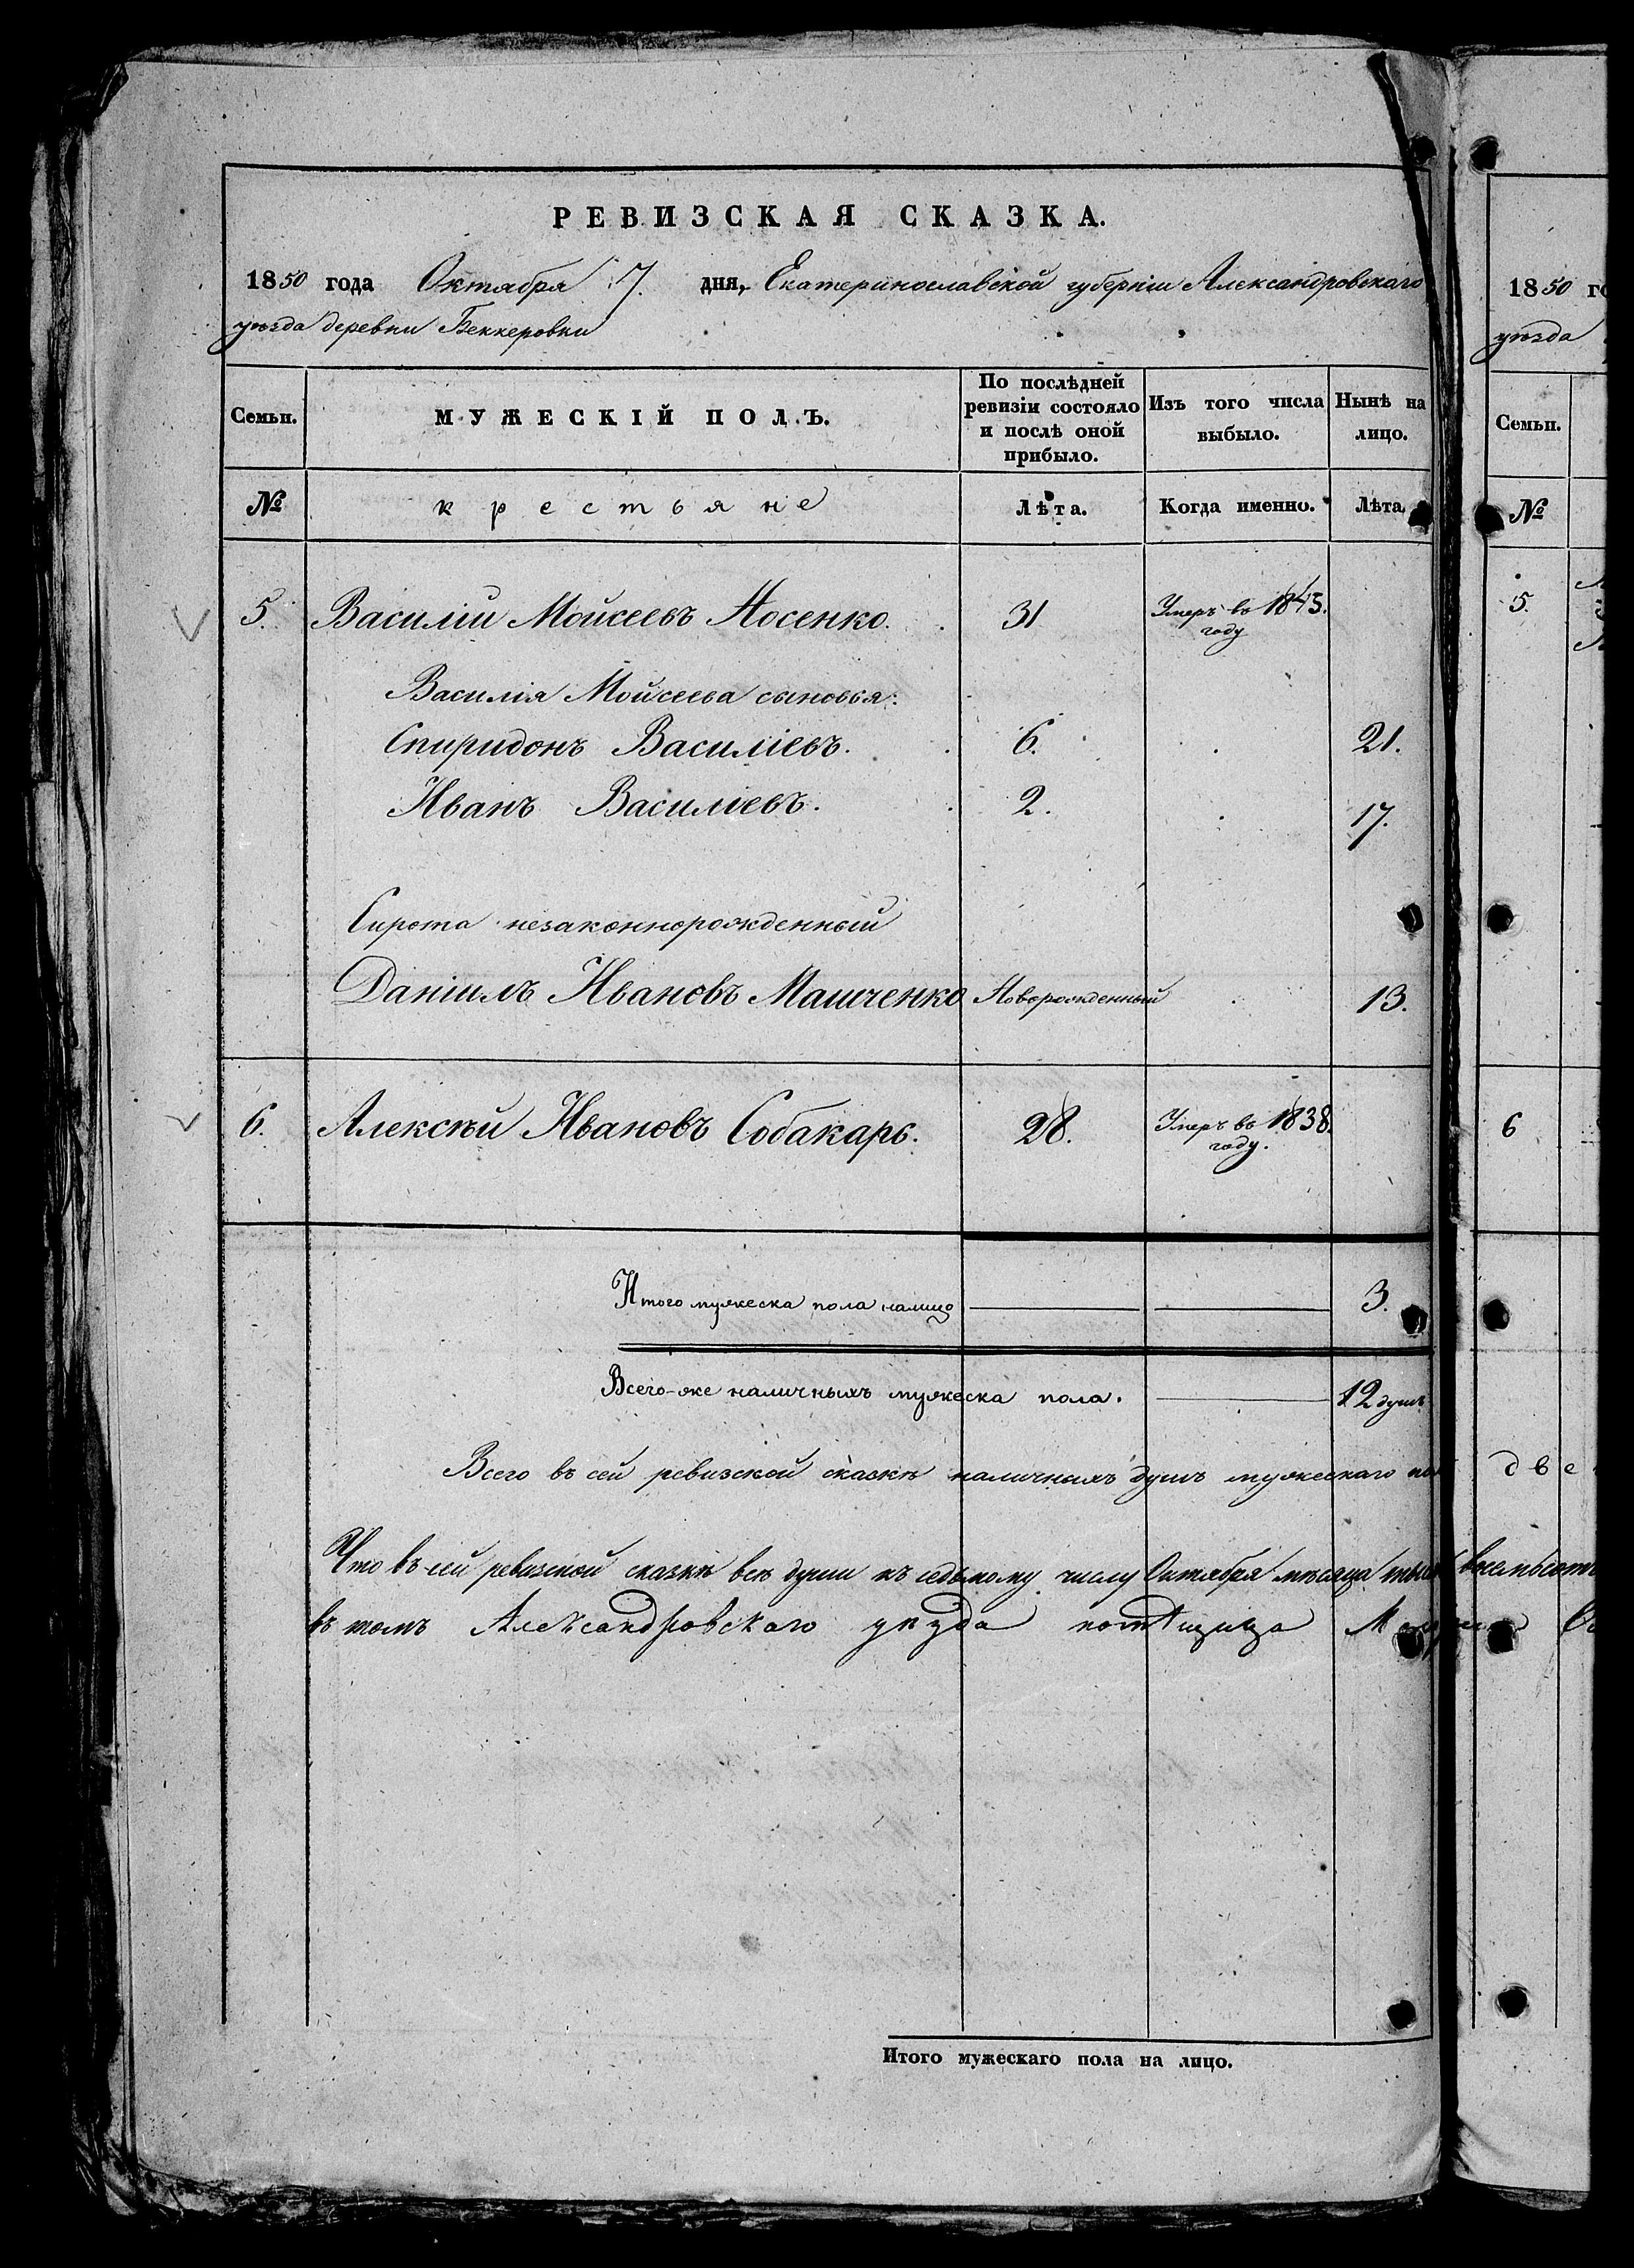 РЕВИЗСКАЯ СКАЗКА.
1850 года Октября 7. дня, Екатеринославской губерніи Александровскаго
уѣзда деревни Беккеровки
Семьи.
МУЖЕСКІЙ ПОЛЪ.
По послѣдней
ревизіи состояло
и послѣ оной
прибыло.
Изъ того числа
выбыло.
Нынѣ на
лицо.
№
крестьяне
Лѣта.
Когда именно.
Лѣта.
5. Василій Мойсеевъ Носенко. 31 Умеръ въ 1843.
году
Василія Мойсеева сыновья:
Спиридонъ Василіевъ. 6. 21.
Иванъ Василіевъ. 2. 17.
Сирота незаконнорожденный
Даніилъ Ивановъ Машченко Новорожденный 13.
6. Алексѣй Ивановъ Собакарь. 28. Умеръ въ 1838.
году.
Итого мужеска пола налицо 3.
Всего-же наличныхъ мужеска пола. 12 душъ
Всего въ сей ревизской сказкѣ наличныхъ душъ мужескаго
Что въ сей ревизской сказкѣ всѣ души къ седьмому числу Октября мѣсяца восемьсотъ
въ томъ Александровскаго уѣзда помѣщица
Итого мужескаго пола на лицо.
1850
уѣзда
Семьи.
№
5.
6
две